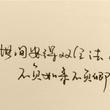 世间安得双全法
不负如来不负卿